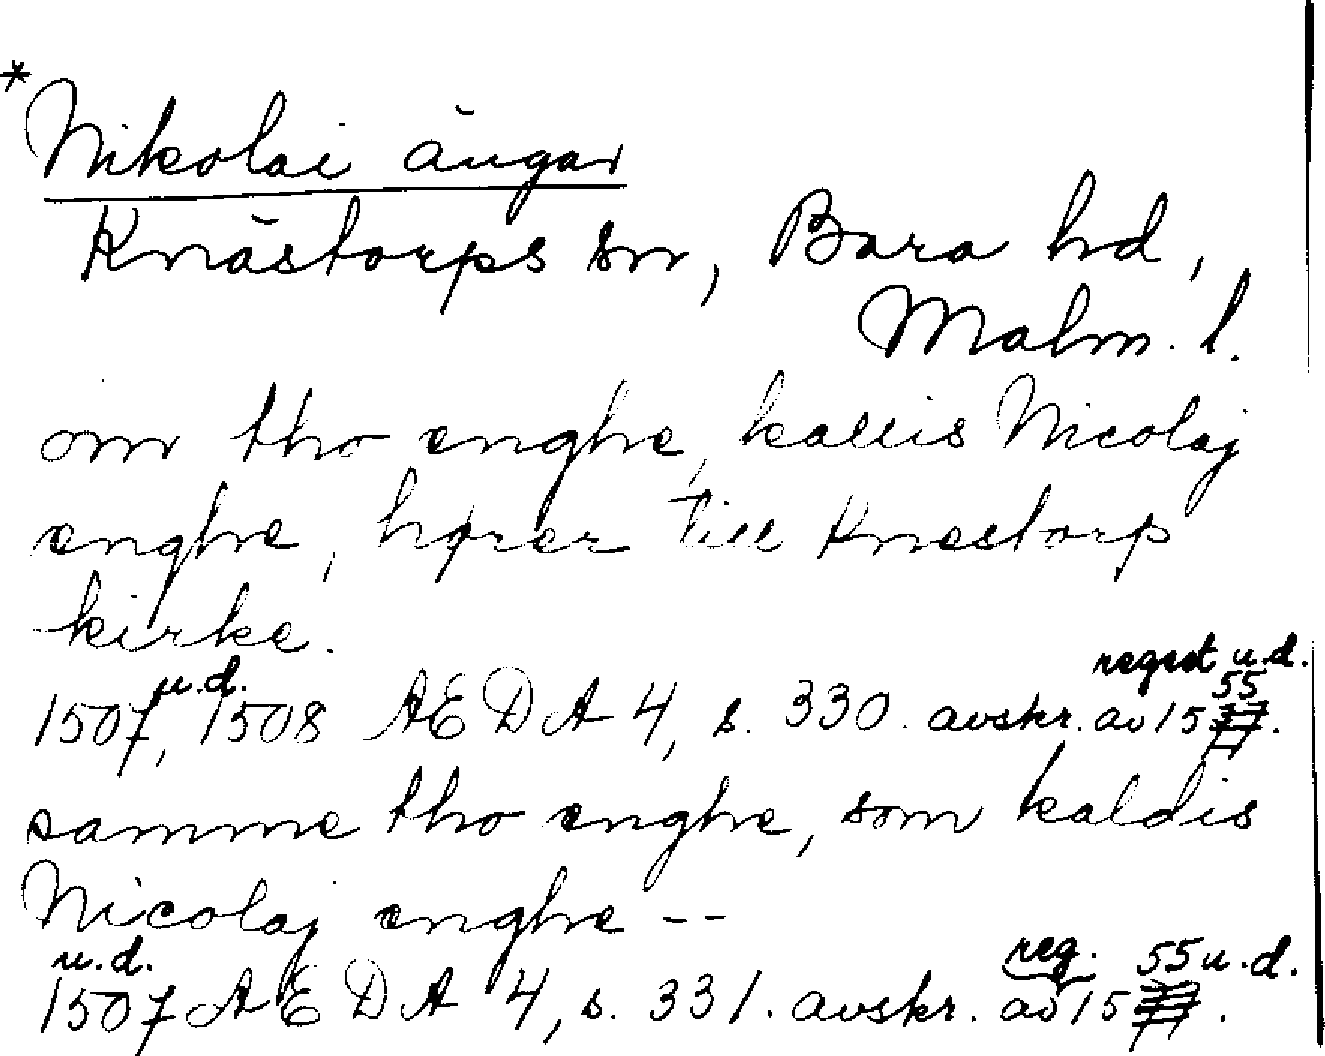 * Nikolai ängar
Knästorps sn, Bara hd,
Malm. l.
om tho enghe, kallis Nicolaj
enghe, hører till Knestorp
kirke.
regest u.d.
u.d. 55
1507, 1508 AEDA 4, s. 330. avskr. av 1577.
samme tho enghe, som kaldis
Nicolaj enghe --
u.d. reg. 55 u.d.
1507 AEDA 4, s. 331. avskr. av 1577.